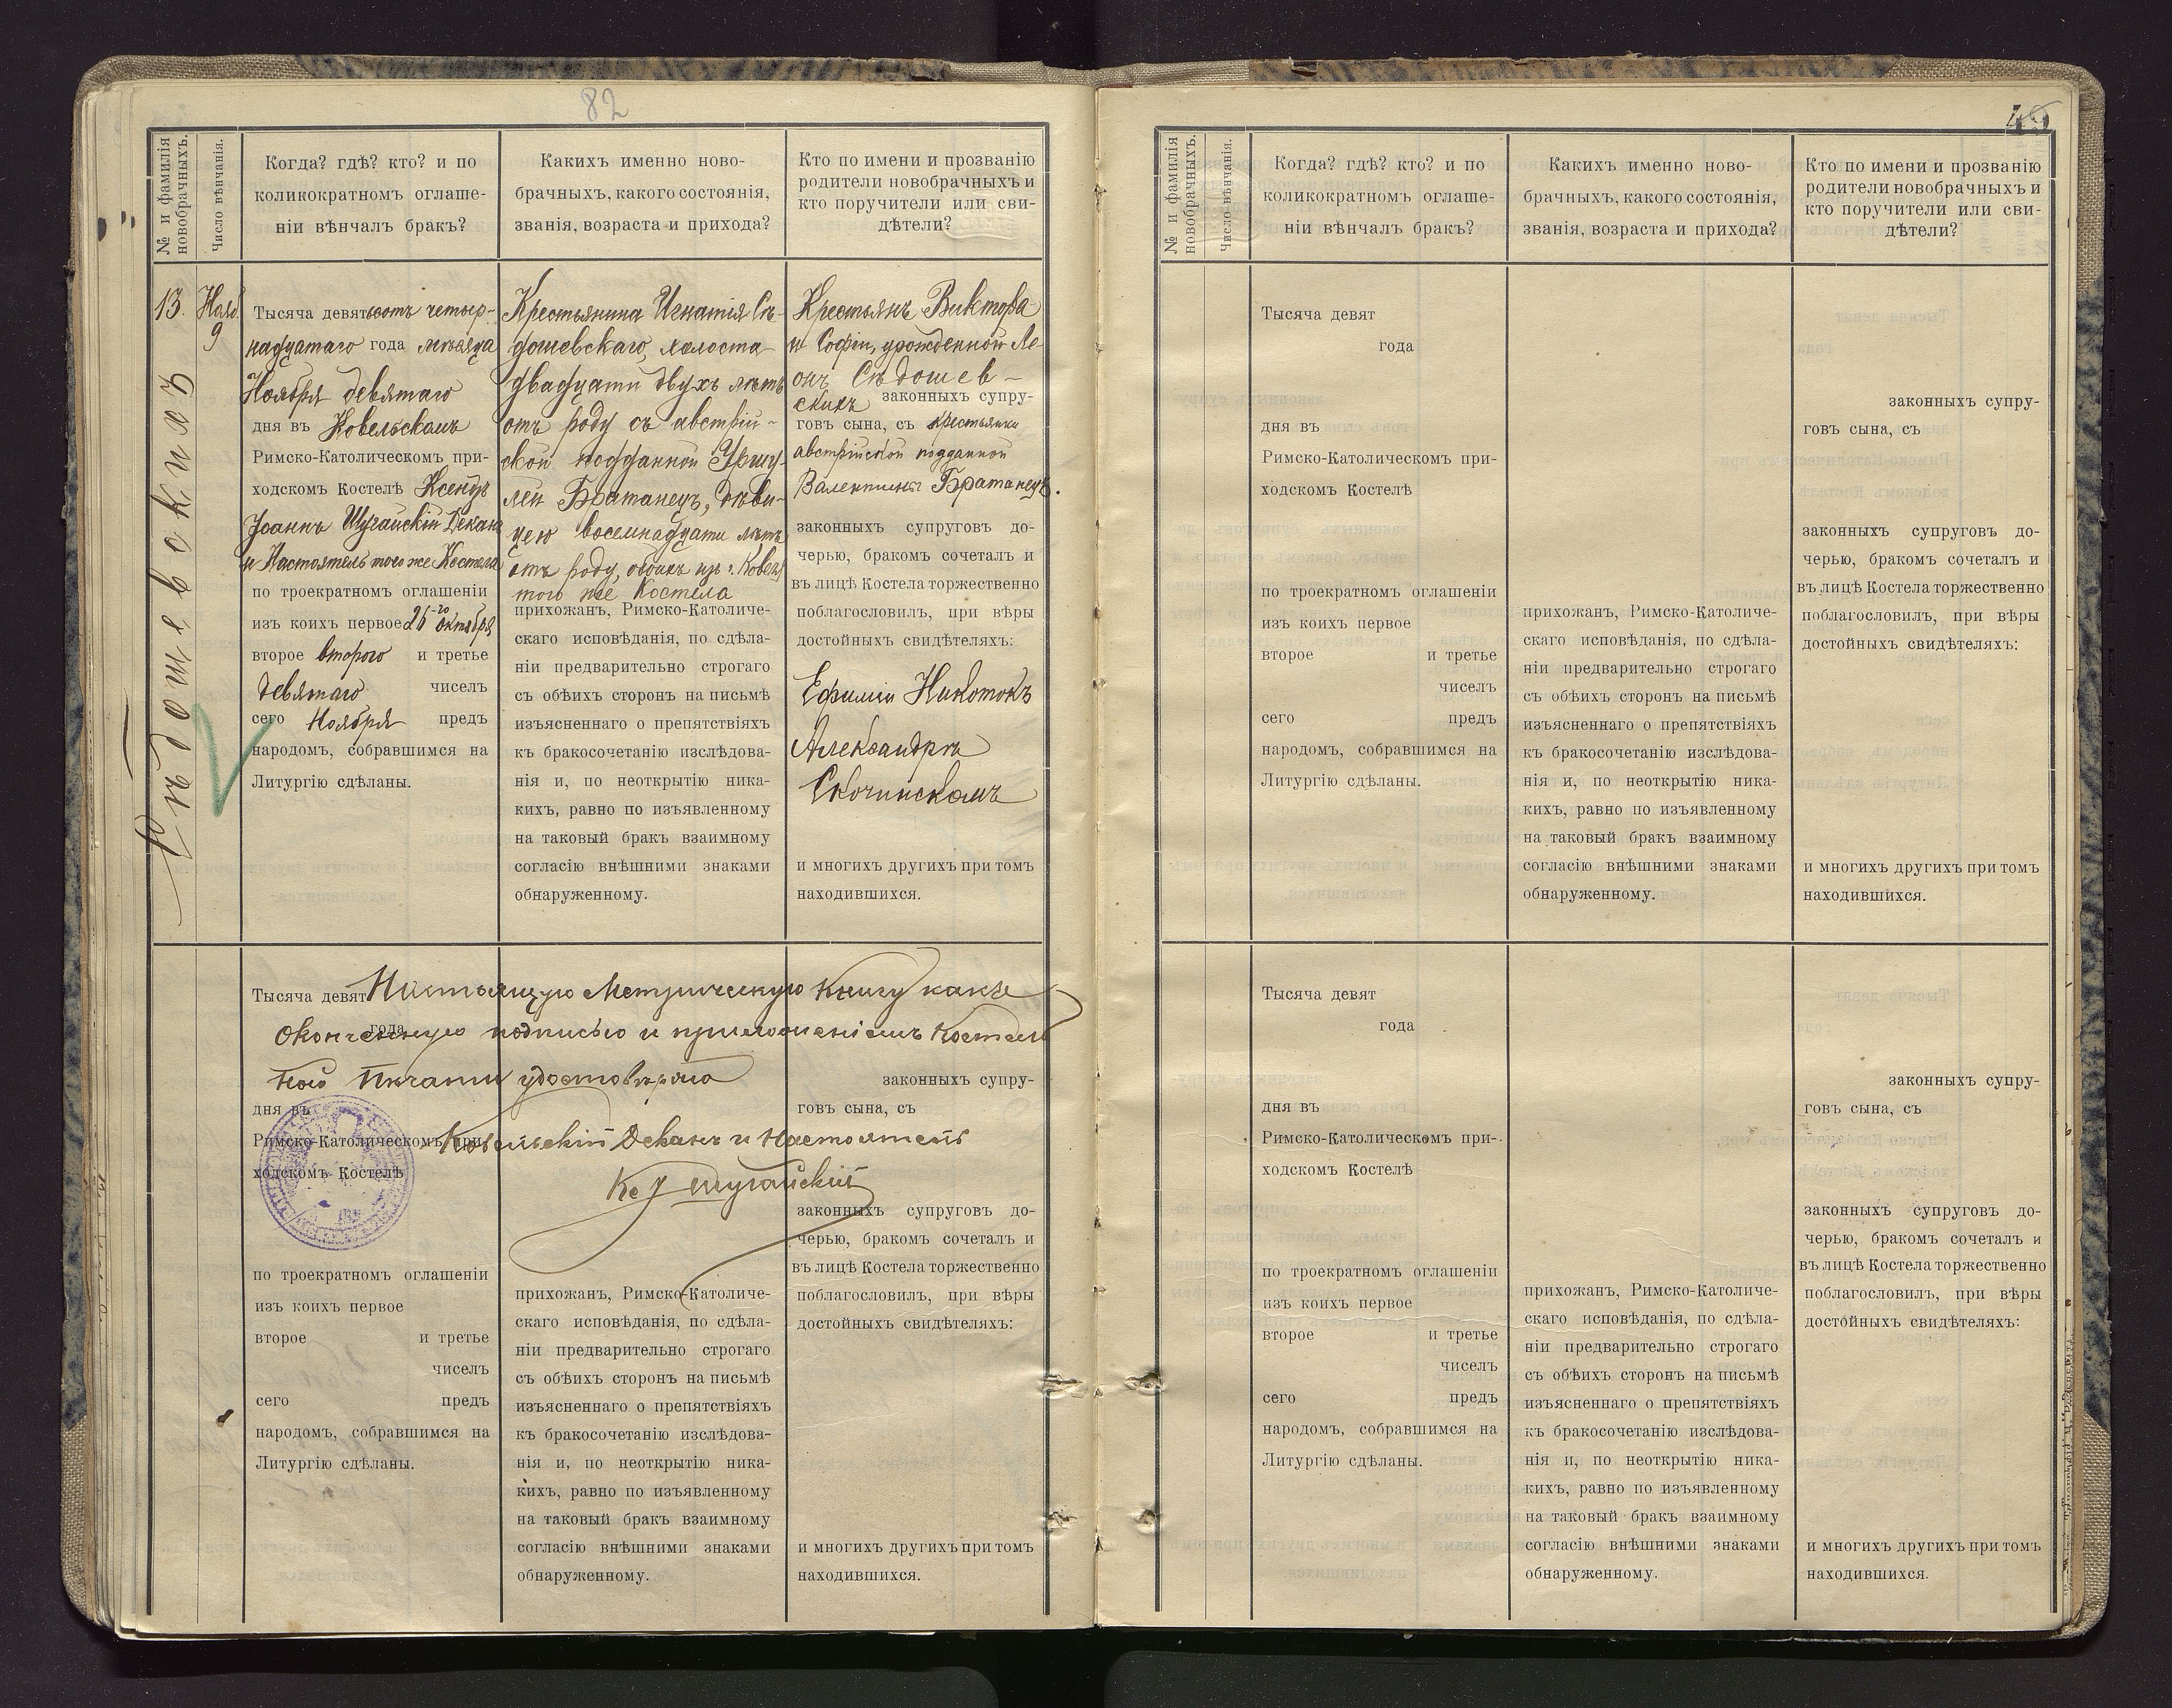 82
№ и фамилія
новобрачныхъ.
Число вѣнчанія.
Когда? гдѣ? кто? и по
коликократномъ оглаше-
ніи вѣнчалъ бракъ?
Какихъ именно ново-
брачныхъ, какого состоянія,
званія, возраста и прихода?
Кто по имени и прозванію
родители новобрачныхъ и
кто поручители или сви-
дѣтели?
13.
Нояб.
9
Сѣдошевскихъ
Тысяча девятьсотъ четыр-
надцатаго года мѣсяца
Ноября девятаго
дня въ Ковельскомъ
Римско-Католическомъ при-
ходскомъ Костелѣ Ксендзъ
Іоаннъ Шугайскій Деканъ
и Настоятель того же Костела
по троекратномъ оглашеніи
изъ коихъ первое 26-го октября
второе второго и третье
девятаго чиселъ
сего Ноября предъ
народомъ, собравшимся на
Литургію сдѣланы.
Крестьянина Игнатія Сѣ-
дошевскаго, холоста
двадцати двухъ лѣтъ
отъ роду съ австрій-
ской подданной Уршу-
лей Братанецъ, дѣви-
цею восемнадцати лѣтъ
отъ роду, обоихъ изъ г. Ковель
того же Костела
прихожанъ, Римско-Католиче-
скаго исповѣданія, по сдѣла-
ніи предварительно строгаго
съ обѣихъ сторонъ на письмѣ
изъясненнаго о препятствіяхъ
къ бракосочетанію изслѣдова-
нія и, по неоткрытію ника-
кихъ, равно по изъявленному
на таковый бракъ взаимному
согласію внѣшними знаками
обнаруженному.
Крестьянъ Виктора
и Софіи, урожденной Ле-
онъ Сѣдошев-
скихъ законныхъ супру-
говъ сына, съ крестьянки
австрійской подданной
Валентины Братанецъ.
законныхъ супруговъ до-
черью, бракомъ сочеталъ и
въ лицѣ Костела торжественно
поблагословилъ, при вѣры
достойныхъ свидѣтеляхъ:
Ефиміи
Александрѣ
Скочинскомъ
и многихъ другихъ при томъ
находившихся.
Тысяча девят Настоящую Метрическую Книгу какъ
года
оконченную подписью и приложеніемъ Костель
ной Печати удостовѣряю
законныхъ супру-
дня въ
говъ сына, съ
Римско-Католическомъ при-
Ковельскій Деканъ и Настоятель
ходскомъ Костелѣ
Кс І Шугайскій
законныхъ супруговъ до-
черью, бракомъ сочеталъ и
въ лицѣ Костела торжественно
поблагословилъ, при вѣры
достойныхъ свидѣтеляхъ:
по троекратномъ оглашеніи
изъ коихъ первое
второе и третье
чиселъ
сего предъ
народомъ, собравшимся на
Литургію сдѣланы.
прихожанъ, Римско-Католиче-
скаго исповѣданія, по сдѣла-
ніи предварительно строгаго
съ обѣихъ сторонъ на письмѣ
изъясненнаго о препятствіяхъ
къ бракосочетанію изслѣдова-
нія и, по неоткрытію ника-
кихъ, равно по изъявленному
на таковый бракъ взаимному
согласію внѣшними знаками
обнаруженному.
и многихъ другихъ при томъ
находившихся.
№ и фамилія
новобрачныхъ.
Число вѣнчанія.
Когда? гдѣ? кто? и по
коликократномъ оглаше-
ніи вѣнчалъ бракъ?
Какихъ именно ново-
брачныхъ, какого состоянія,
званія, возраста и прихода?
Кто по имени и прозванію
родители новобрачныхъ и
кто поручители или сви-
дѣтели?
Тысяча девят
года
дня въ
Римско-Католическомъ при-
ходскомъ Костелѣ
по троекратномъ оглашеніи
изъ коихъ первое
второе и третье
чиселъ
сего предъ
народомъ, собравшимся на
Литургію сдѣланы.
прихожанъ, Римско-Католиче-
скаго исповѣданія, по сдѣла-
ніи предварительно строгаго
съ обѣихъ сторонъ на письмѣ
изъясненнаго о препятствіяхъ
къ бракосочетанію изслѣдова-
нія и, по неоткрытію ника-
кихъ, равно по изъявленному
на таковый бракъ взаимному
согласію внѣшними знаками
обнаруженному.
законныхъ супру-
говъ сына, съ
законныхъ супруговъ до-
черью, бракомъ сочеталъ и
въ лицѣ Костела торжественно
поблагословилъ, при вѣры
достойныхъ свидѣтеляхъ:
и многихъ другихъ при томъ
находившихся.
Тысяча девят
года
дня въ
Римско-Католическомъ при-
ходскомъ Костелѣ
по троекратномъ оглашеніи
изъ коихъ первое
второе и третье
чиселъ
сего предъ
народомъ, собравшимся на
Литургію сдѣланы.
прихожанъ, Римско-Католиче-
скаго исповѣданія, по сдѣла-
ніи предварительно строгаго
съ обѣихъ сторонъ на письмѣ
изъясненнаго о препятствіяхъ
къ бракосочетанію изслѣдова-
нія и, по неоткрытію ника-
кихъ, равно по изъявленному
на таковый бракъ взаимному
согласію внѣшними знаками
обнаруженному.
законныхъ супру-
говъ сына, съ
законныхъ супруговъ до-
черью, бракомъ сочеталъ и
въ лицѣ Костела торжественно
поблагословилъ, при вѣры
достойныхъ свидѣтеляхъ:
и многихъ другихъ при томъ
находившихся.